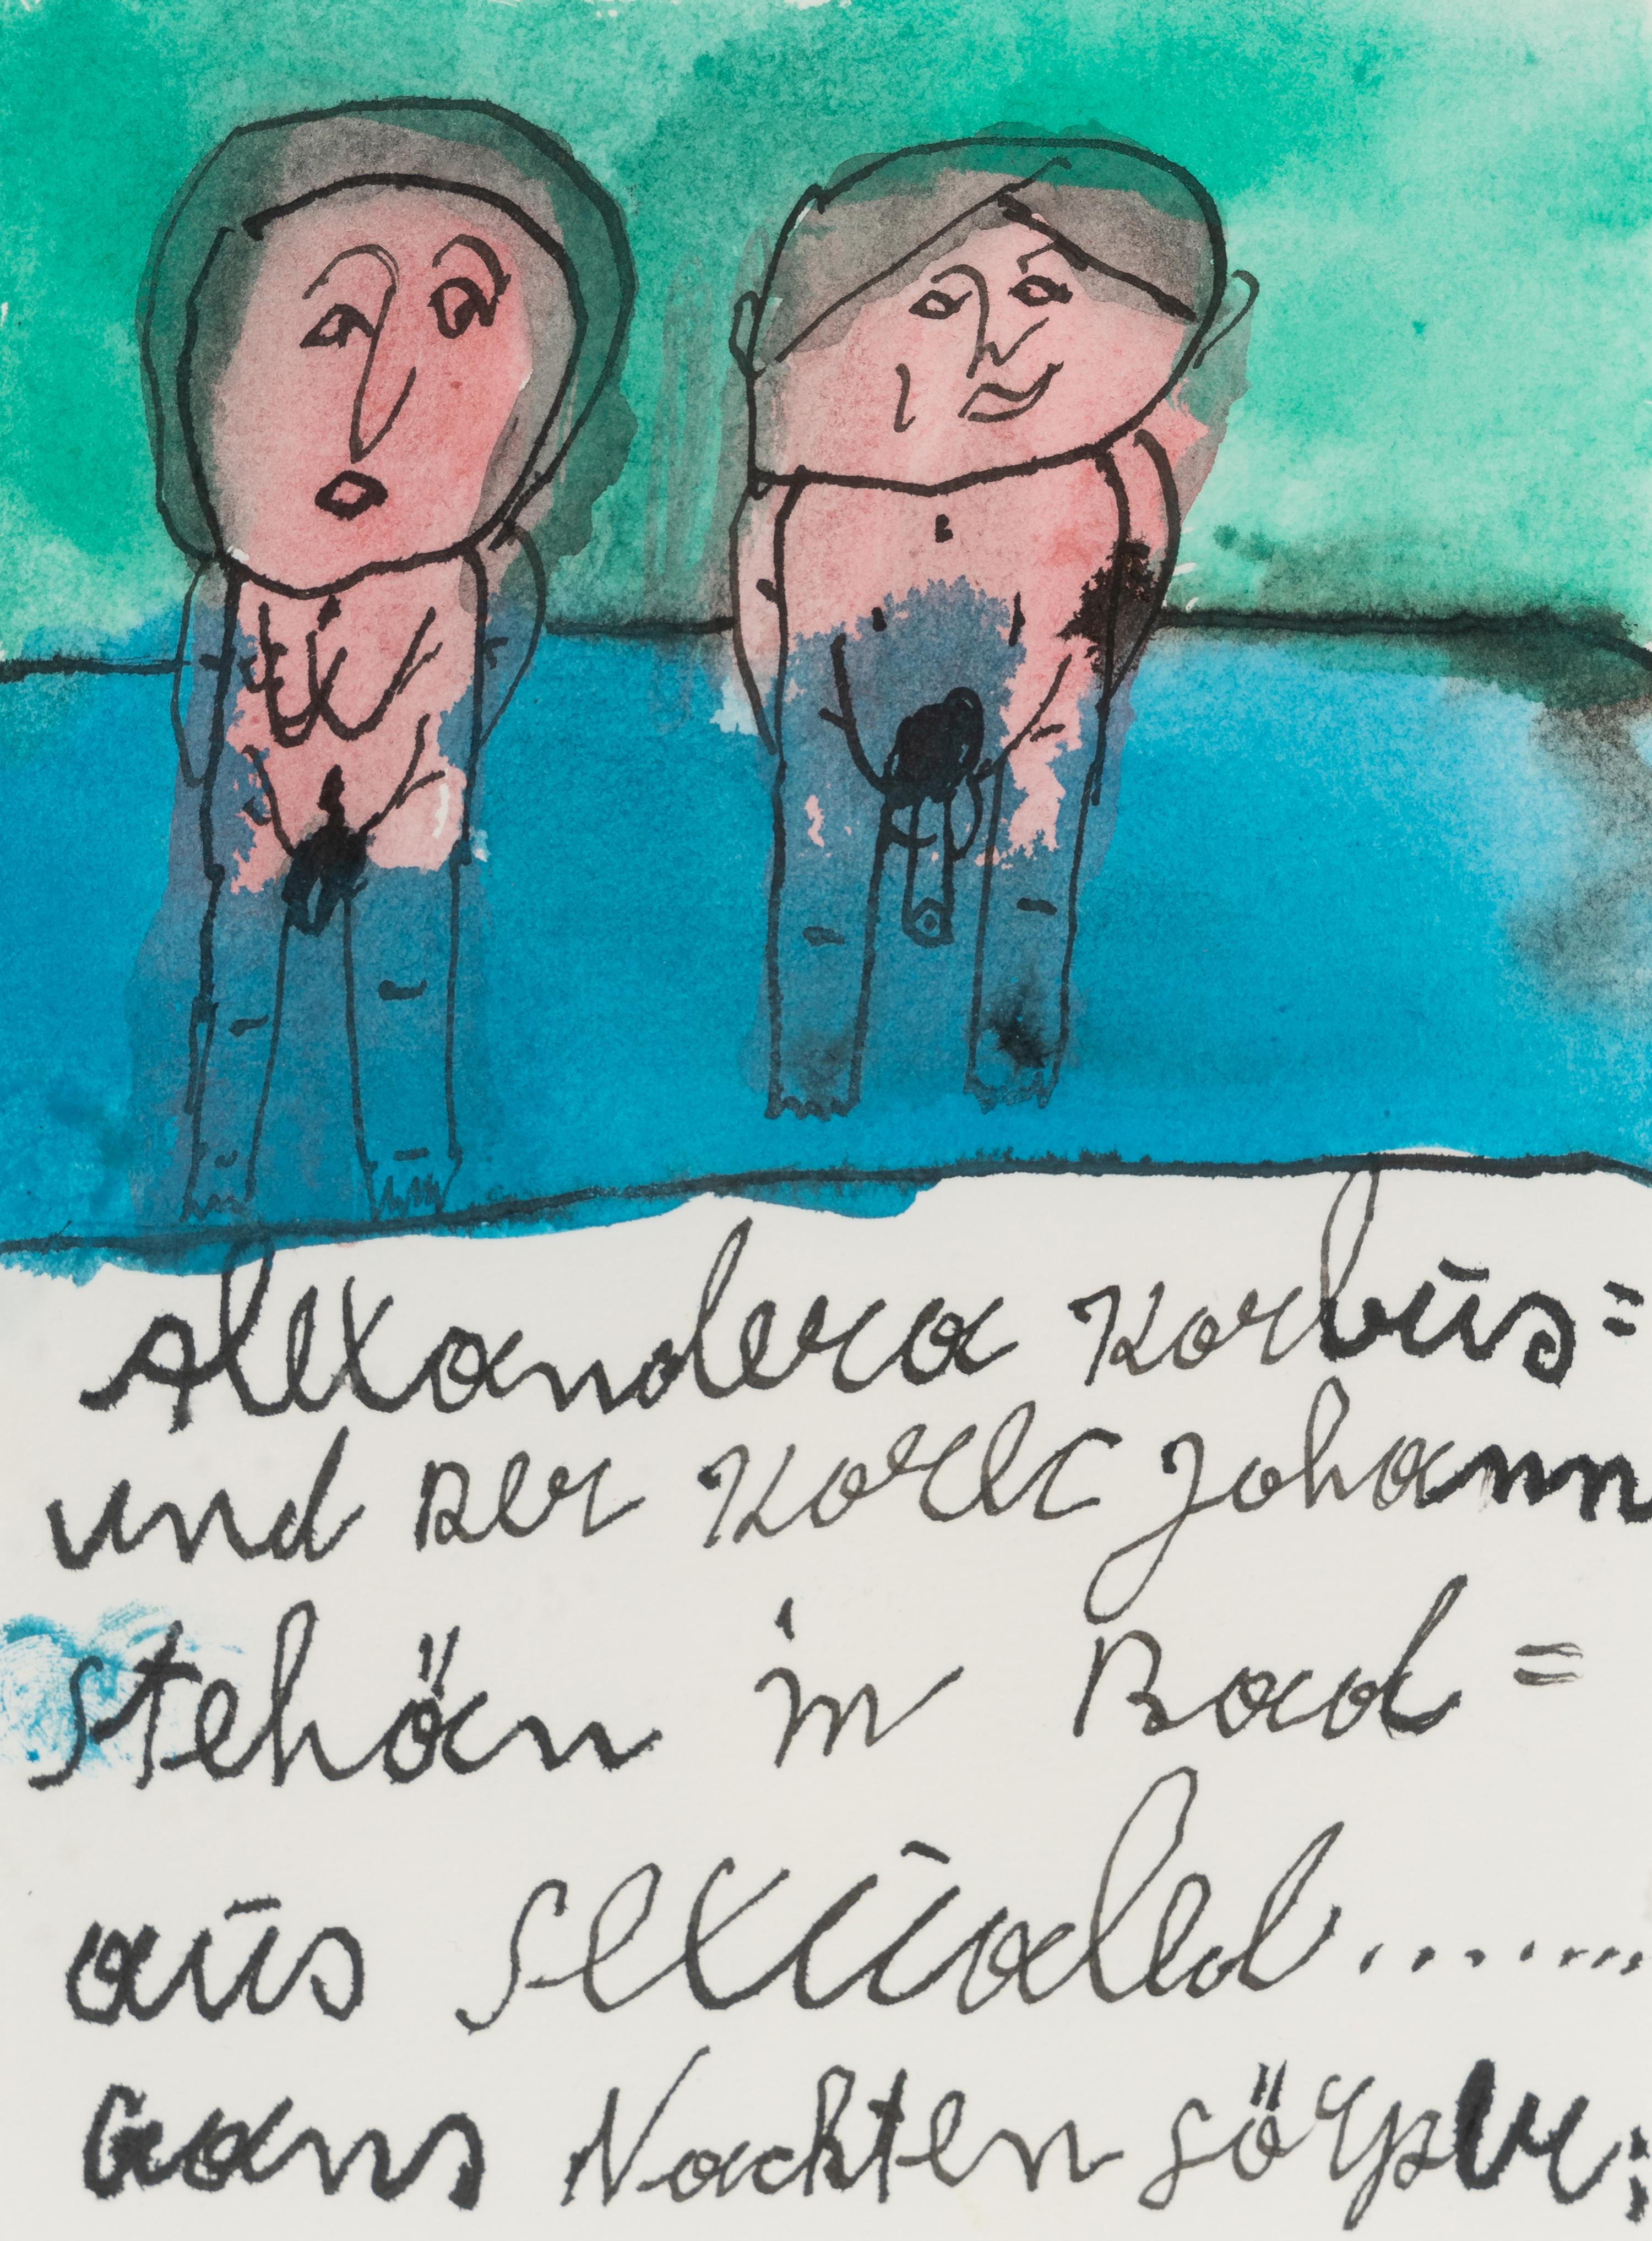 Alexandera Korbüs=
und Der Korler Johann
stehän im Bad=
aūs sexūaled........
Gans Nackten görper: